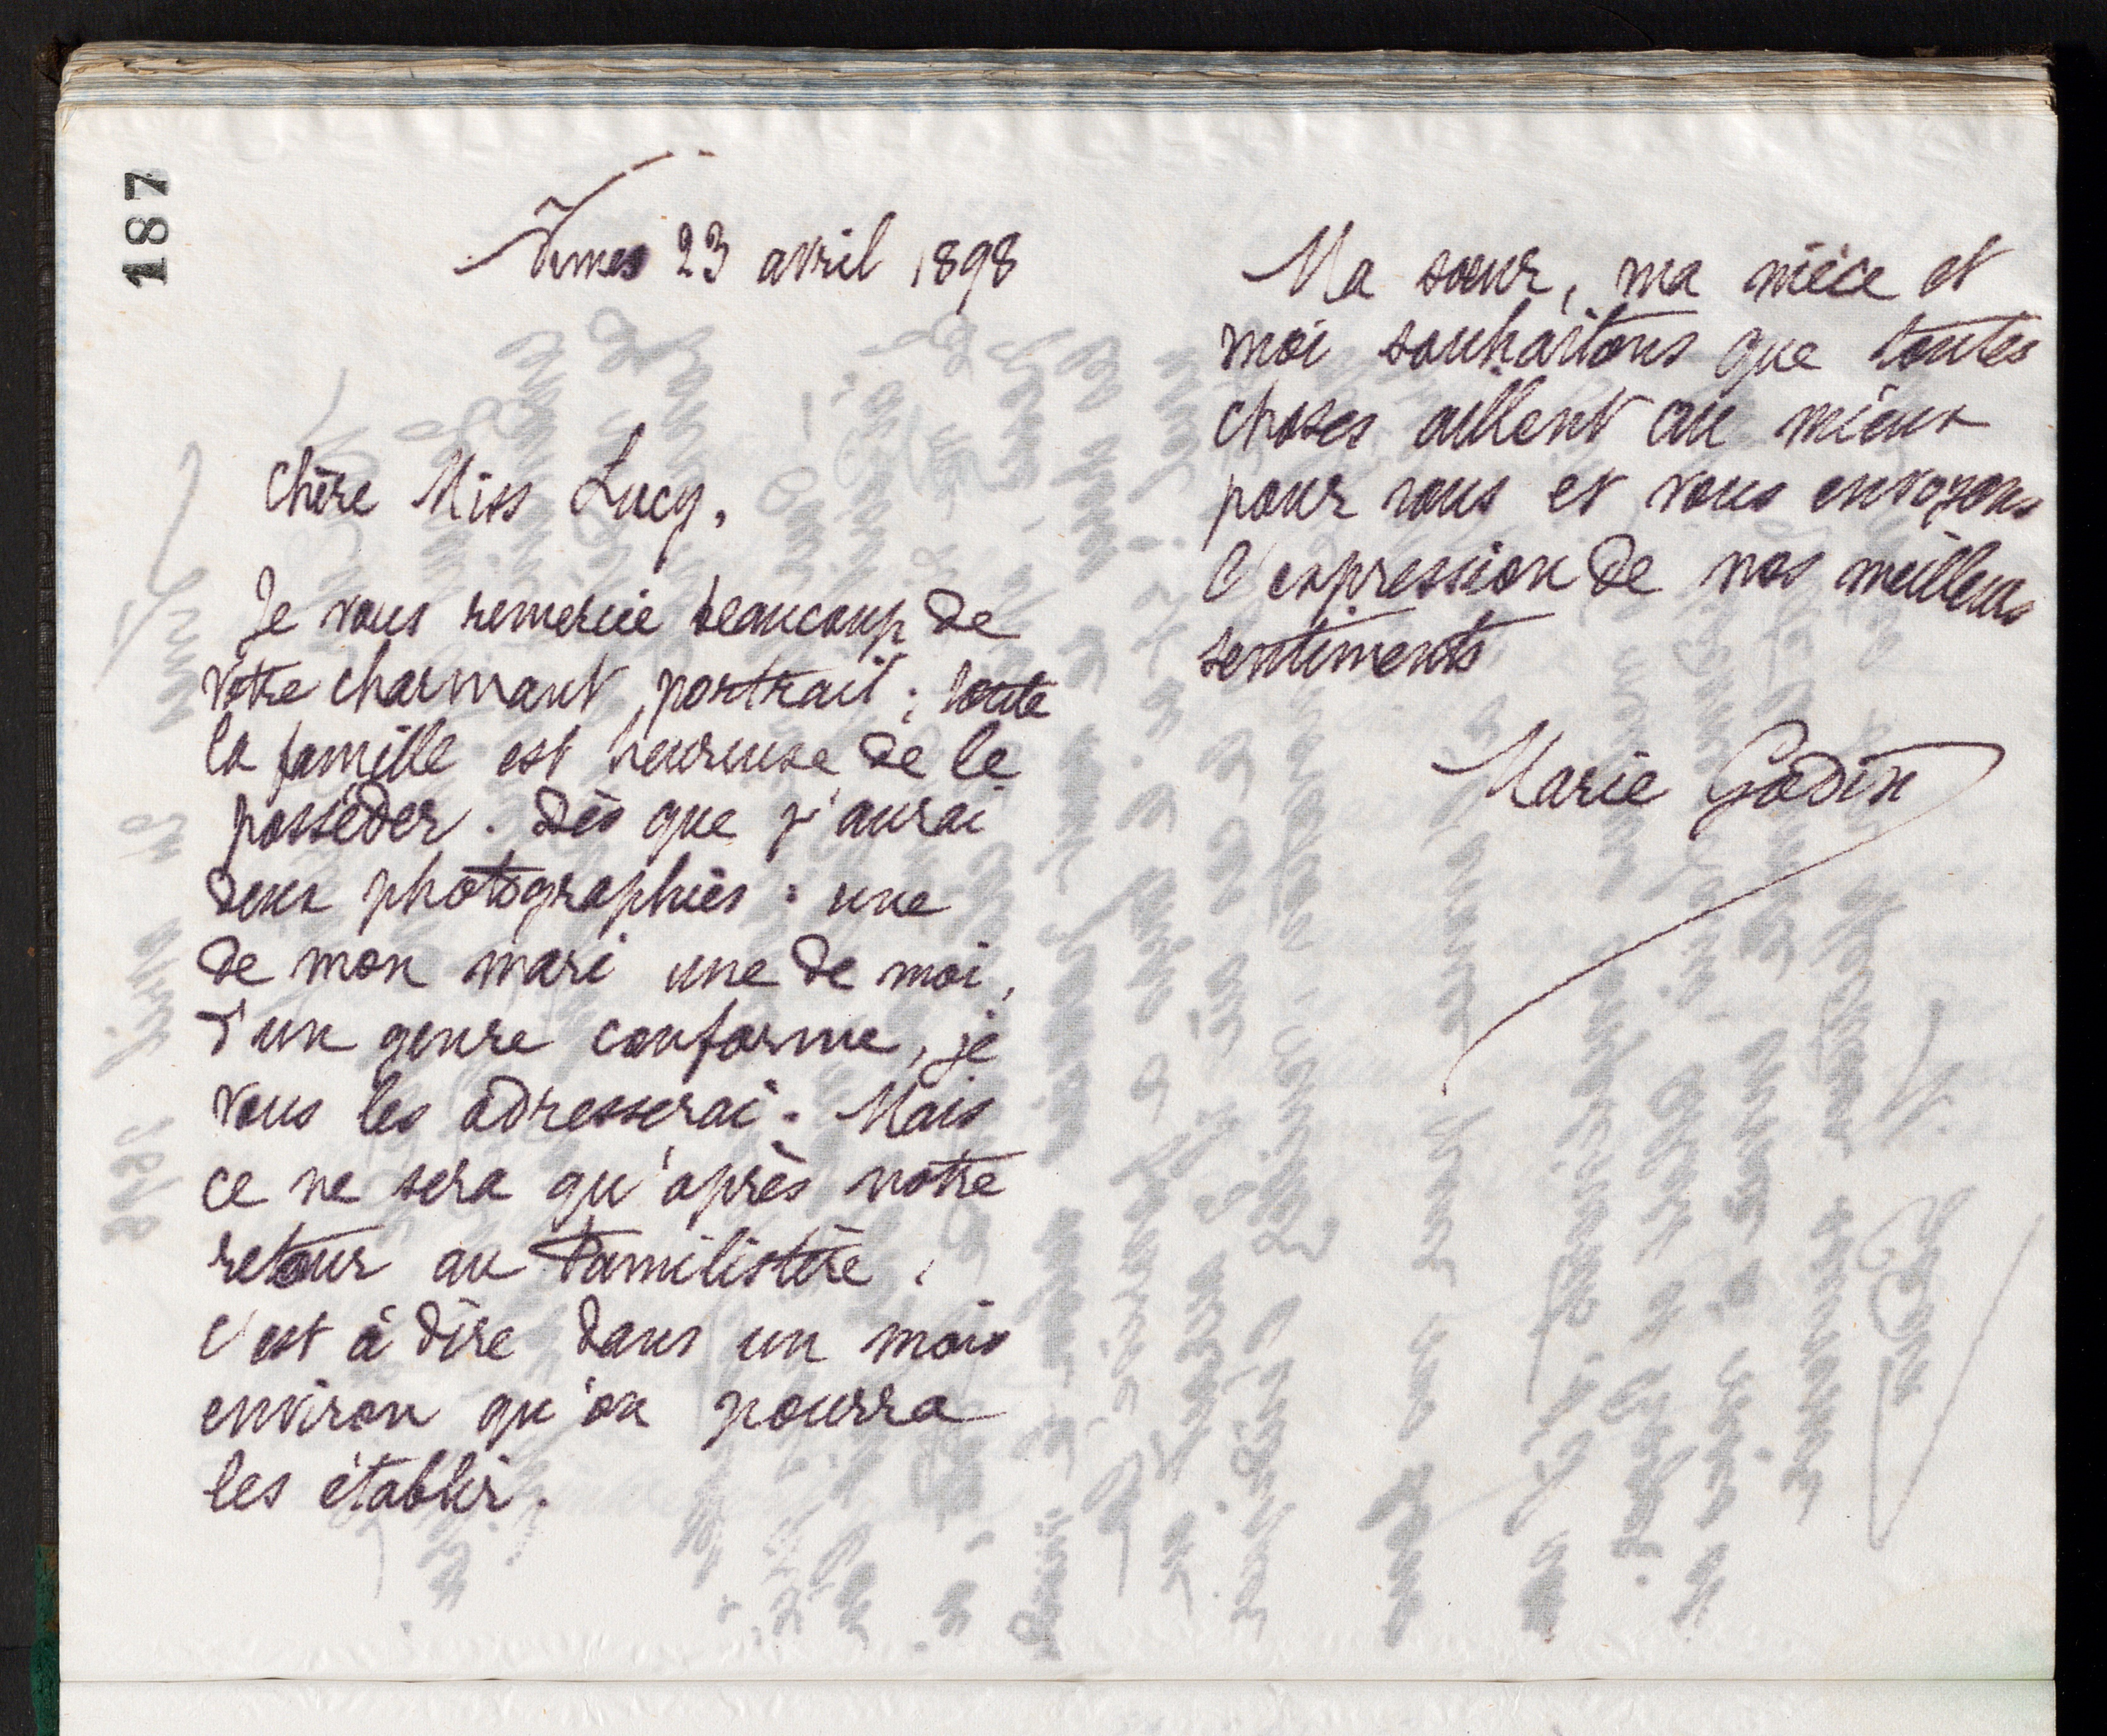 187
Nimes 23 avril 1898
Chère Miss Lucy,
Je vous remercie beaucoup de
votre charmant portrait ; toute
la famille est heureuse de le
posséder. Dès que j'aurai
deux photographies : une
de mon mari une de moi,
d'un genre conforme, je
vous les adresserai. Mais
ce ne sera qu'après notre
retour au Familistère,
c'est à dire dans un mois
environ qu'on pourra
les établir.
Ma sœur, ma nièce et
moi souhaitons que toutes
choses aillent au mieux
pour vous et vous envoyons
l'expression de nos meilleurs
sentiments
Marie Godin